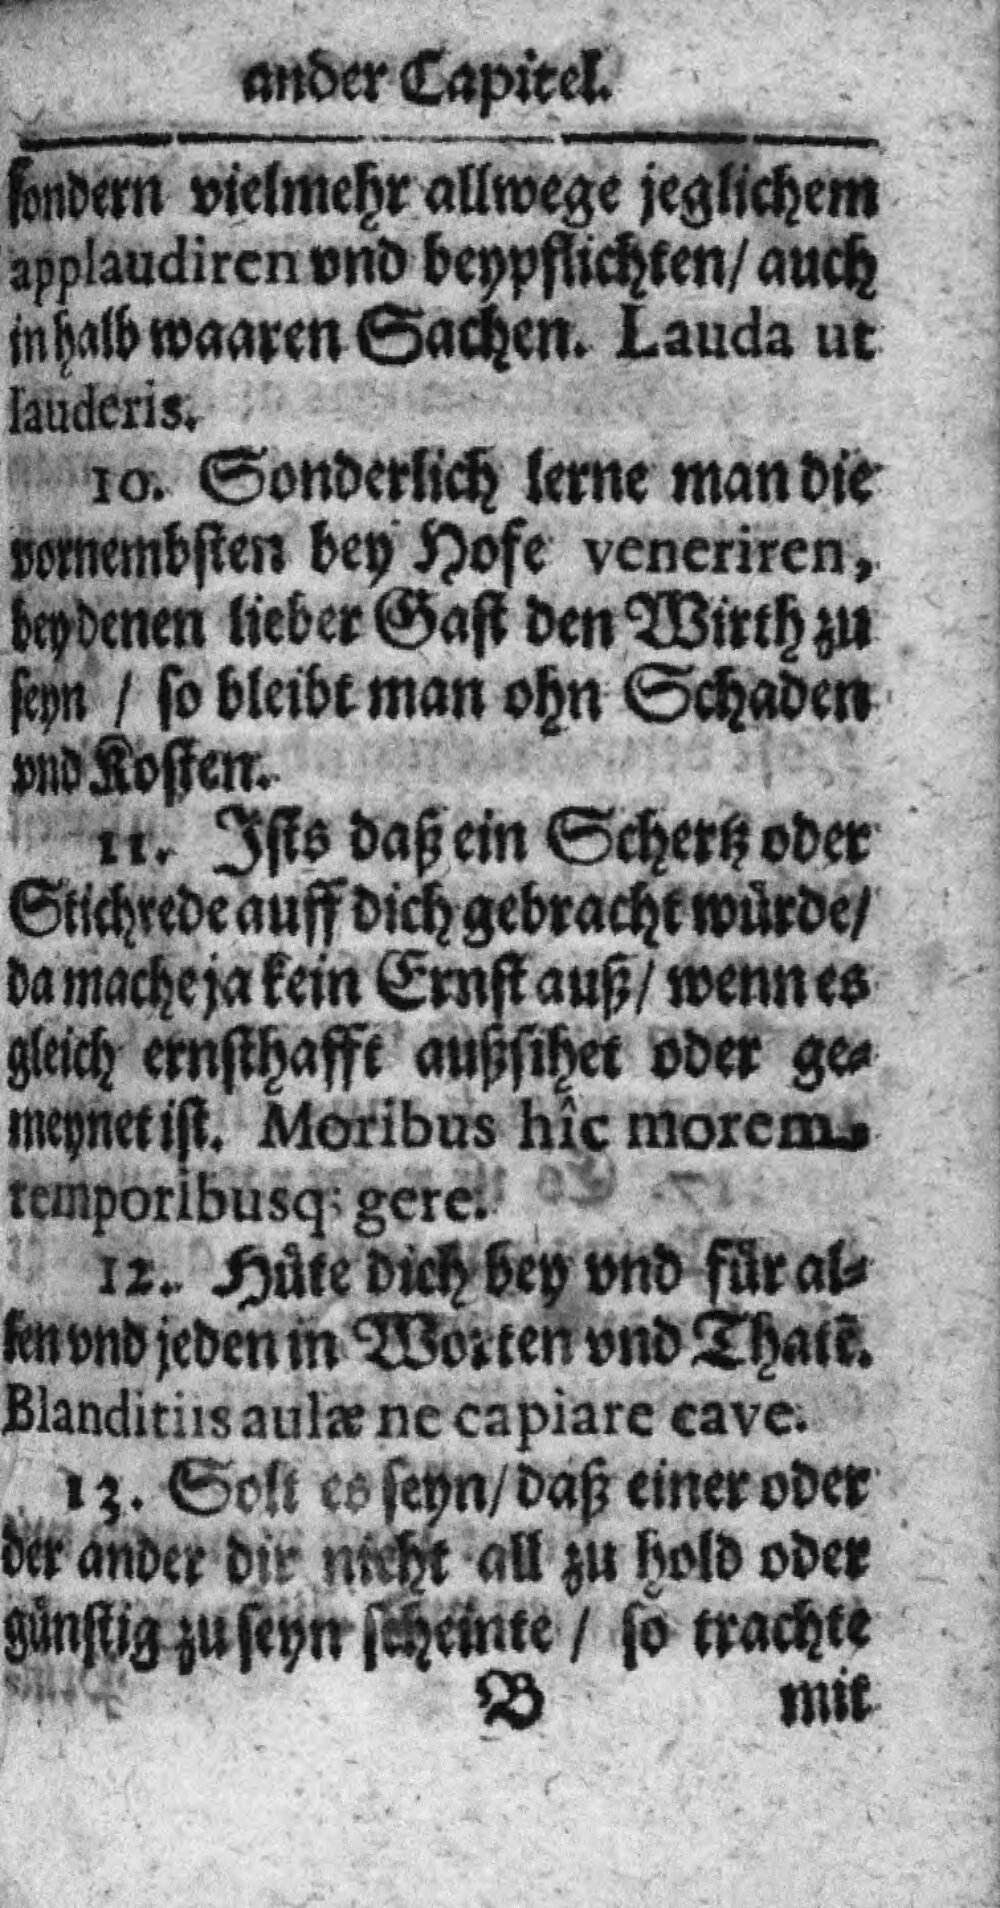 ander Capitel.
sondern vielmehr allwege jeglichem
applaudiren vnd beypflichten/ auch
in halb waaren Sachen. Lauda ut
lauderis.
10. Sonderlich lerne man die
vornembsten bey Hofe veneriren,
bey denen lieber Gast den Wirth zu
seyn / so bleibt man ohn Schaden
vnd Kosten.
11. Jsts daß ein Schertz oder
Stichrede auff dich gebracht wuͤrde/
da mache ja kein Ernst auß/ wenn es
gleich ernsthafft außsihet oder ge-
meynet ist. Moribus hîc morem,
temporibusq; gere.
12. Huͤte dich bey vnd fuͤr al-
len vnd jeden in Worten vnd Thatē.
Blanditiis aulæ ne capiare cave.
13. Solt es seyn/ daß einer oder
der ander dir nicht all zu hold oder
guͤnstig zu seyn scheinte / so trachte
B mit